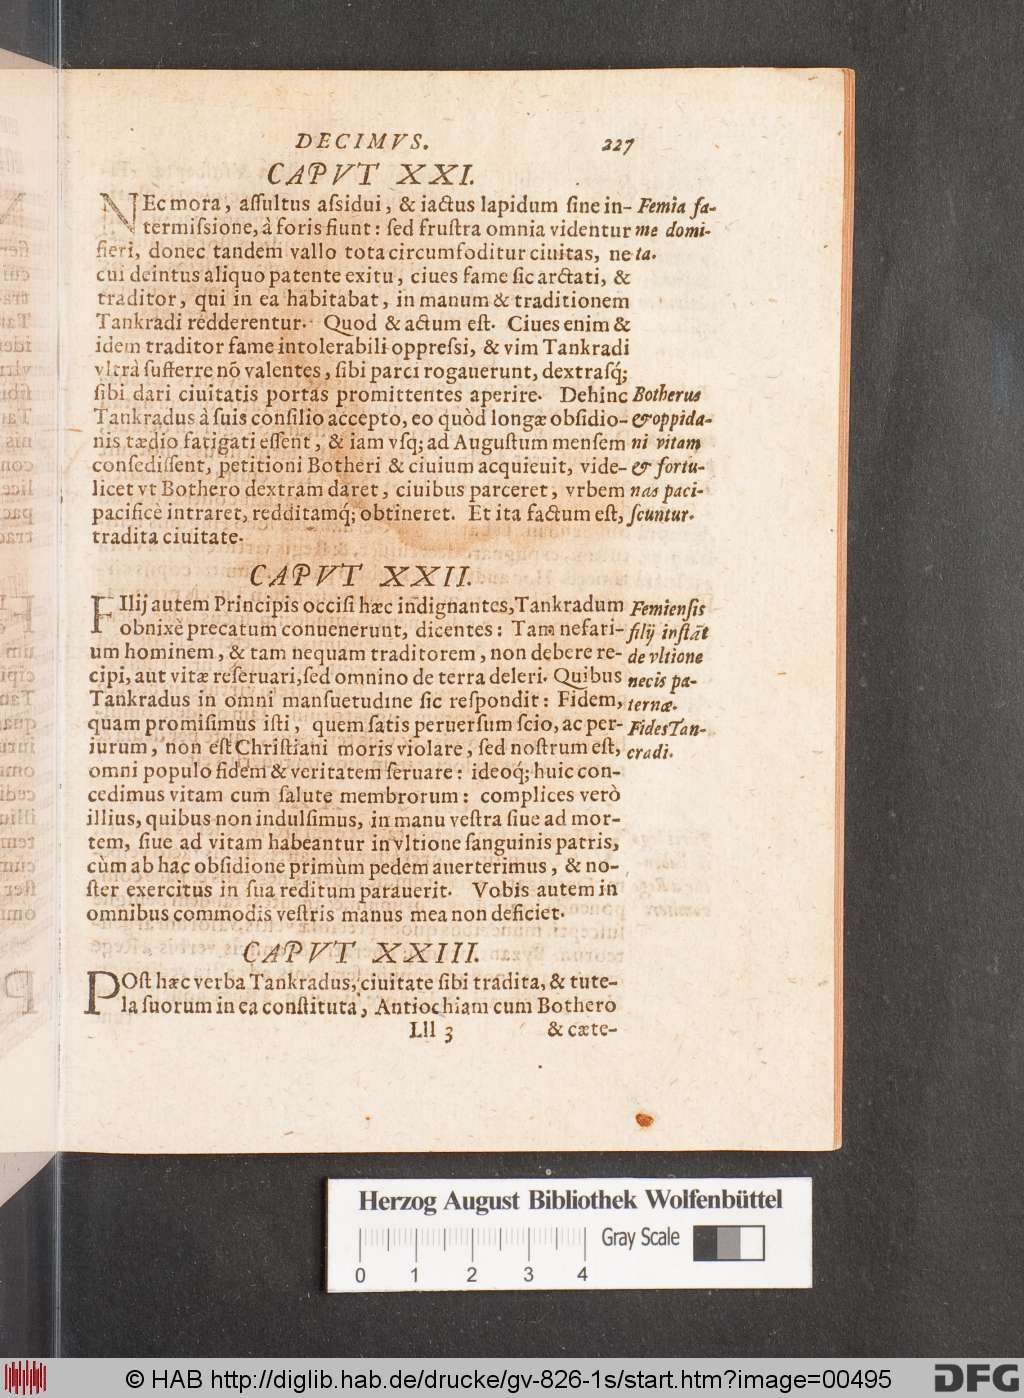 DECIMVS. 227
CAPVT XXI.
NEc mora, aſſultus aſsidui, & iactus lapidum ſine in-
termiſsione, à foris fiunt: ſed fruſtra omnia videntur
fieri, donec tandem vallo tota circumfoditur ciuitas, ne
cui deintus aliquo patente exitu, ciues fame ſic arctati, &
traditor, qui in ea habitabat, in manum & traditionem
Tankradi redderentur. Quod & actum eſt. Ciues enim &
idem traditor fame intolerabili oppreſsi, & vim Tankradi
vltrà ſufferre nō valentes, ſibi parci rogauerunt, dextraſq́;
ſibi dari ciuitatis portas promittentes aperire. Dehinc
Tankradus à ſuis conſilio accepto, eo quòd longæ obſidio-
nis tædio fatigati eſſent, & iam vſq; ad Auguſtum menſem
conſediſſent, petitioni Botheri & ciuium acquieuit, vide-
licet vt Bothero dextram daret, ciuibus parceret, vrbem
pacificè intraret, redditamq́; obtineret. Et ita factum eſt,
tradita ciuitate.
Femia fa-
me domi-
ta.
Botherus
& oppida-
ni vitam
& fortu-
nas paci-
ſcuntur.
CAPVT XXII.
FIlij autem Principis occiſi hæc indignantes, Tankradum
obnixè precatum conuenerunt, dicentes: Tam nefari-
um hominem, & tam nequam traditorem, non debere re-
cipi, aut vitæ reſeruari, ſed omnino de terra deleri. Quibus
Tankradus in omni manſuetudine ſic reſpondit: Fidem,
quam promiſimus iſti, quem ſatis peruerſum ſcio, ac per-
iurum, non eſt Chriſtiani moris violare, ſed noſtrum eſt,
omni populo fidem & veritatem ſeruare: ideoq́; huic con-
cedimus vitam cum ſalute membrorum: complices verò
illius, quibus non indulſimus, in manu veſtra ſiue ad mor-
tem, ſiue ad vitam habeantur in vltione ſanguinis patris,
cùm ab hac obſidione primùm pedem auerterimus, & no-
ſter exercitus in ſua reditum parauerit. Vobis autem in
omnibus commodis veſtris manus mea non deficiet.
Femienſis
filij inſtāt
de vltione
necis pa-
ternæ.
Fides Tan-
cradi.
CAPVT XXIII.
POſt hæc verba Tankradus, ciuitate ſibi tradita, & tute-
la ſuorum in ea conſtituta, Antiochiam cum Bothero
Lll 3 & cæte-
Herzog August Bibliothek Wolfenbüttel
Gray Scale
0 1 2 3 4
© HAB http://diglib.hab.de/drucke/gv-826-1s/start.htm?image=00495
DFG